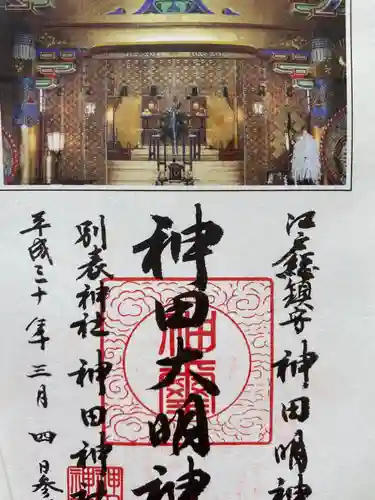 江戸總鎮守 神田明神
神田大明神
別表神社 神田神社
平成三十年三月四日参